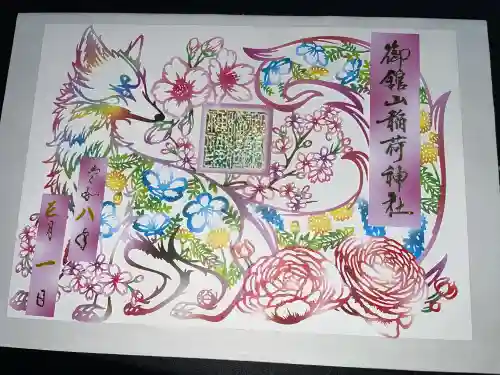 御館山稲荷神社
令和八年
正月一日